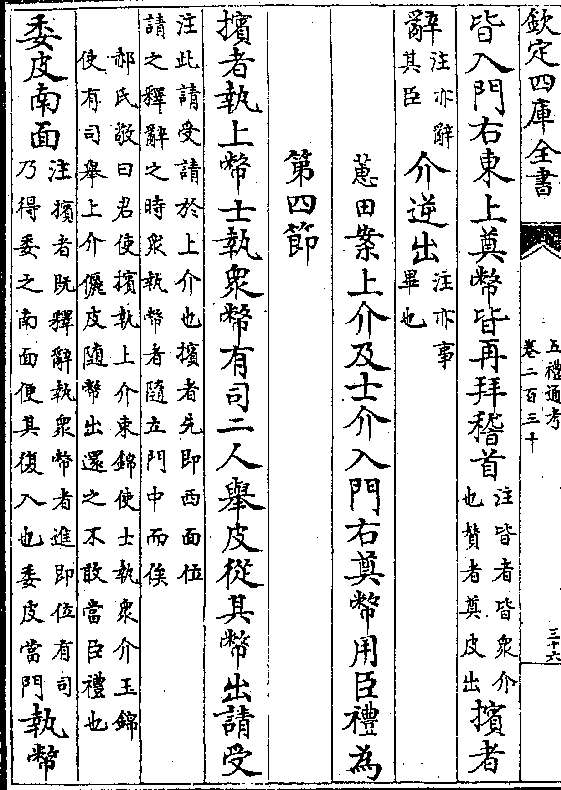 欽定四庫全書
五禮通考
卷二百三十
三十六
皆入門右東上奠幣皆再拜稽首注皆者皆衆介也贊者奠皮出擯者
辭注亦辭其臣介逆出注亦事畢也
蕙田案上介及士介入門右奠幣用臣禮為
第四節
擯者執上幣士執衆幣有司二人舉皮從其幣出請受
注此請受請於上介也擯者先即西面位請之釋辭之時衆執幣者隨立門中而俟
郝氏敬曰君使擯執上介束錦使士執衆介玉錦使有司舉上介儷皮隨幣出還之不敢當臣禮也
委皮南面注擯者既釋辭執衆幣者進即位有司乃得委之南面便其復入也委皮當門執幣